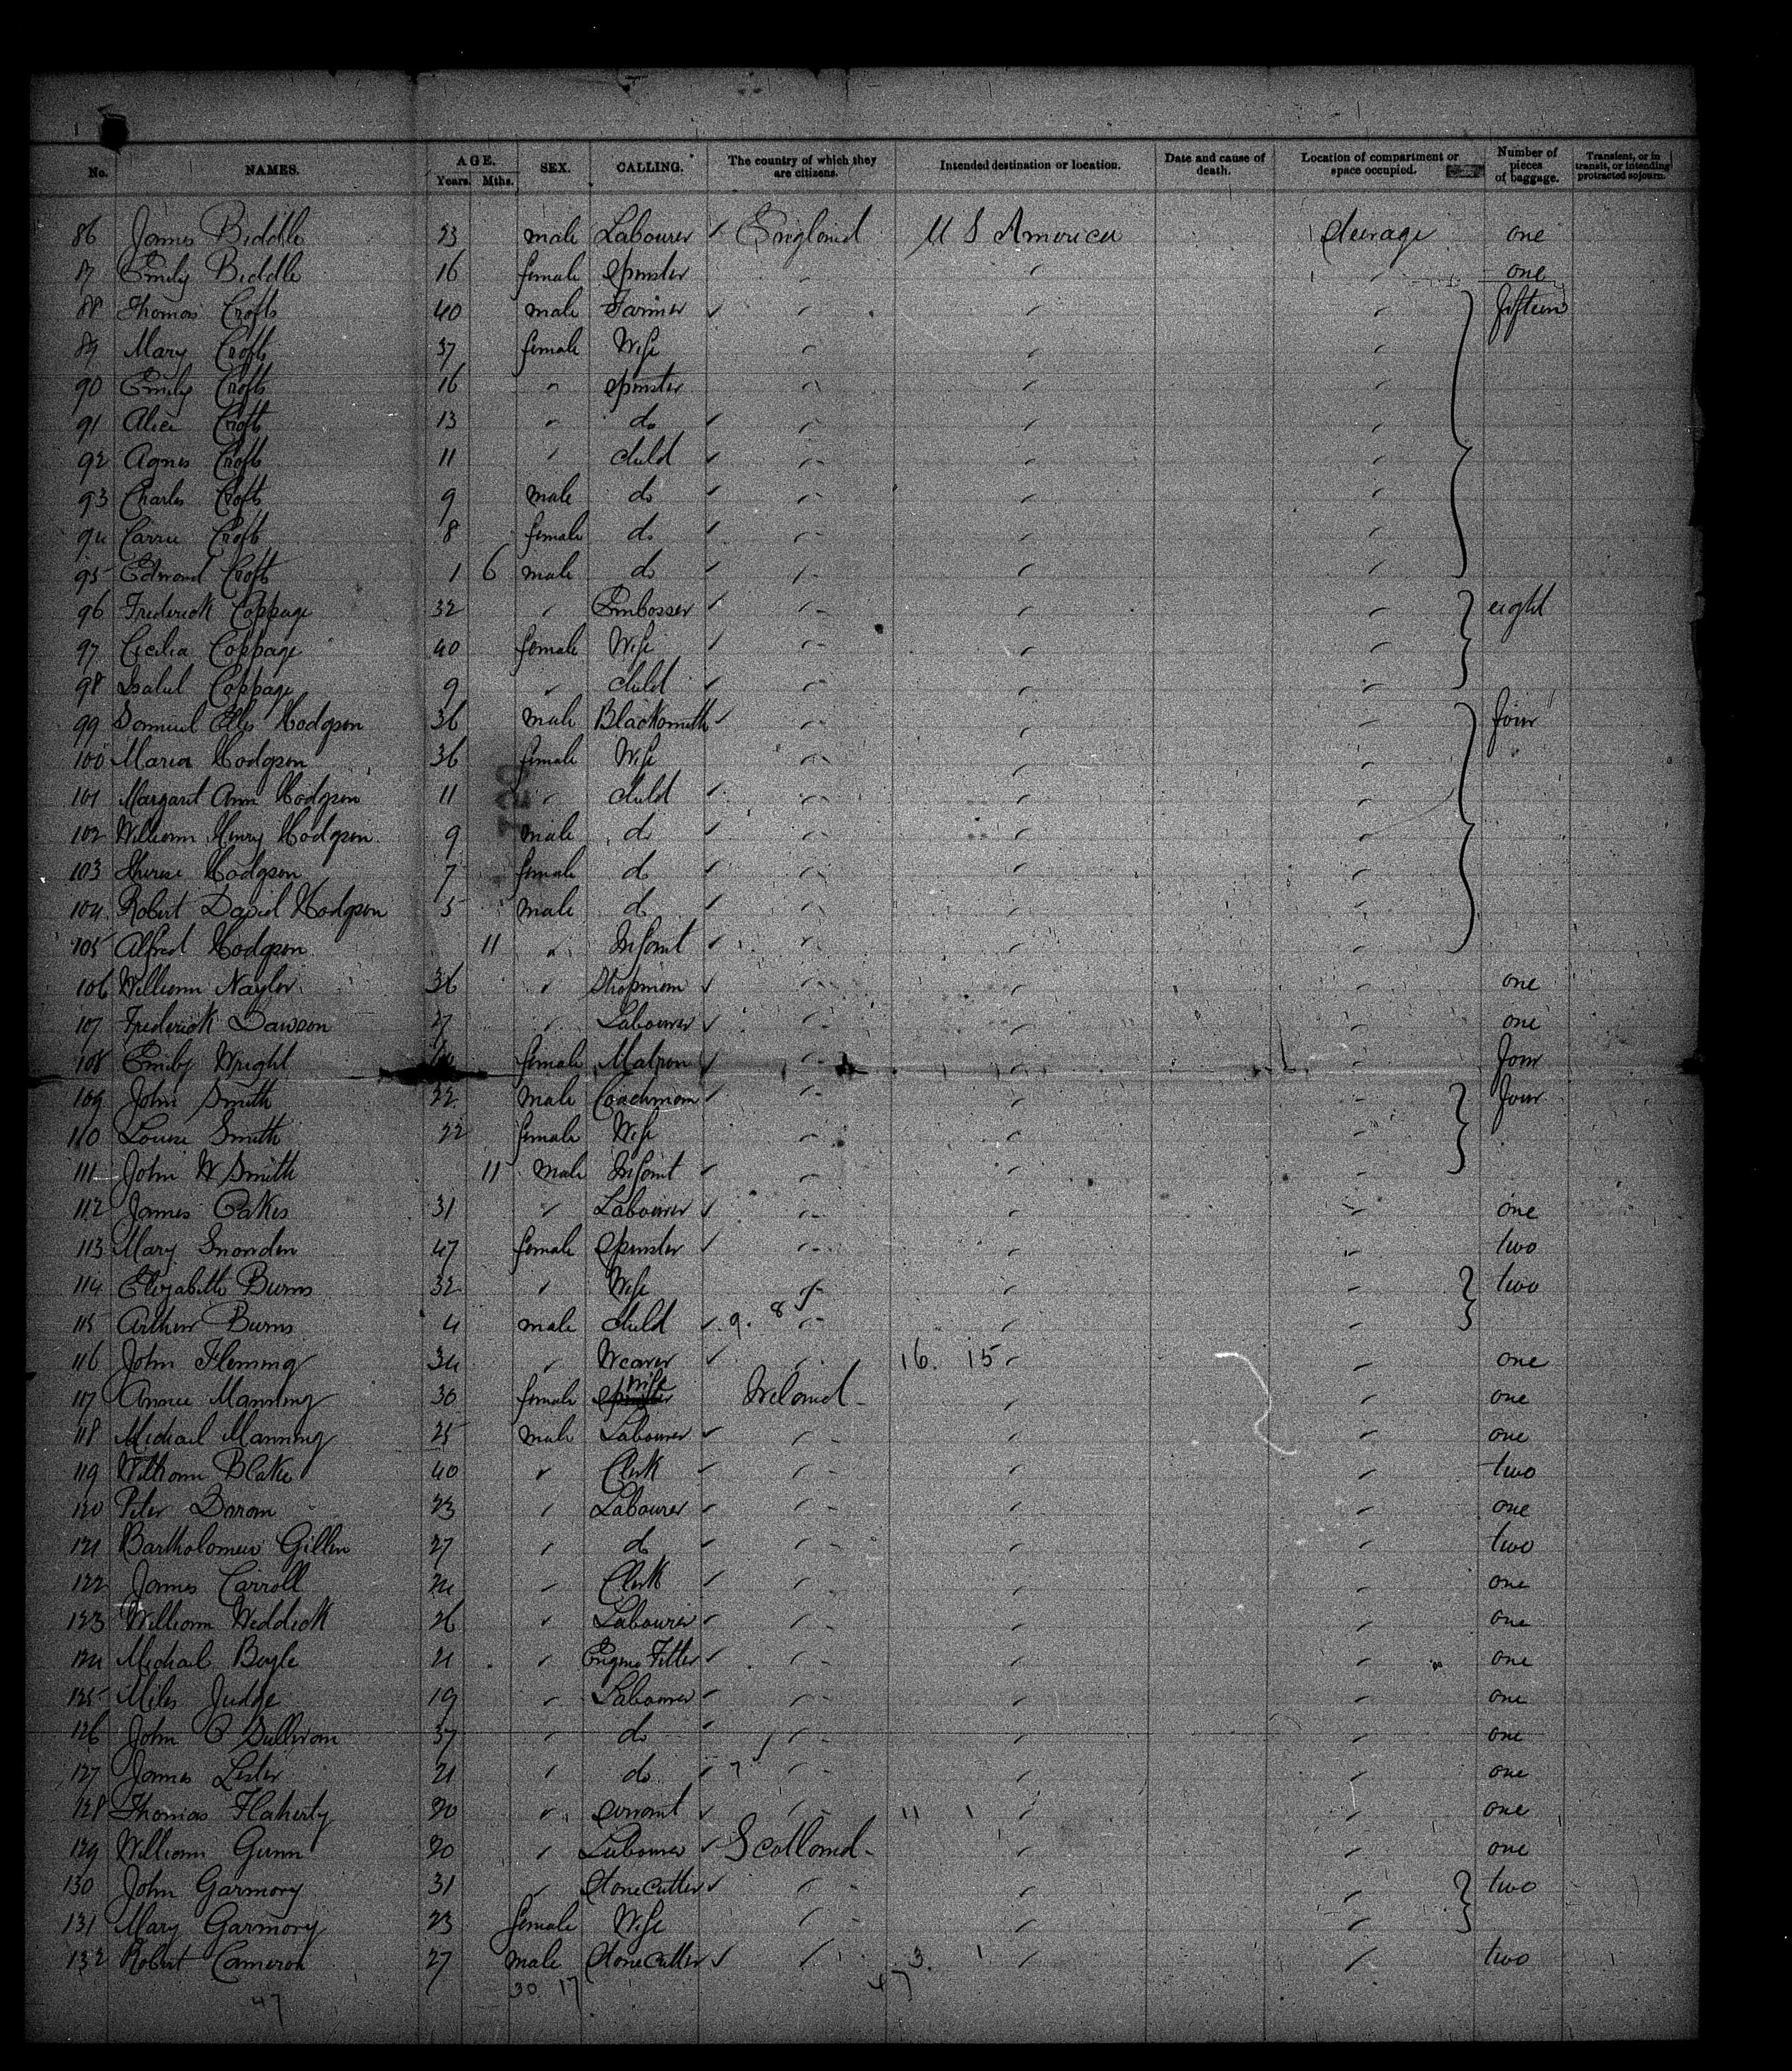 No. NAMES. AGE. Years. Mths. SEX. CALLING. The country of which they are citizens. Intended destination or location. Date and cause of death. Location of compartment or space occupied. Number of pieces of baggage. Transient, or in transit, or intending protracted sojourn.
86 James Biddle 23 male Labourer ✓ England U S America Steerage one
87 Emily Biddle 16 female Spinster one
88 Thomas Crofts 40 male Farmer ✓ fifteen
89 Mary Crofts 37 female Wife
90 Emily Crofts 16 " Spinster
91 Alice Crofts 13 " do ✓
92 Agnes Crofts 11 " child ✓
93 Charles Crofts 9 male do ✓
94 Carrie Crofts 8 female do ✓
95 Edward Crofts 1 6 male do ✓
96 Frederick Coppage 32 " Embosser ✓ eight
97 Cecilia Coppage 40 female Wife ✓
98 Isabel Coppage 9 " child ✓
99 Samuel Ellis Hodgson 36 male Blacksmith ✓ four
100 Maria Hodgson 36 female Wife
101 Margaret Ann Hodgson 11 " child ✓
102 William Henry Hodgson 9 male do ✓
103 Hodgson 7 female do ✓
104 Robert David Hodgson 5 male do ✓
105 Alfred Hodgson 11 " Infant ✓
106 William Naylor 36 " Shopman ✓ one
107 Frederick Dawson 27 " Labourer ✓ one
108 Emily Wright female Matron ✓ four
109 John Smith 22 male Coachman ✓ four
110 Louise Smith 22 female Wife
111 John W Smith 11 male Infant ✓
112 James Oakes 31 " Labourer ✓ one
113 Mary Snowden 47 female Spinster ✓ two
114 Elizabeth Burns 32 " Wife two
115 Arthur Burns 4 male child ✓ 9. 8
116 John Fleming 34 " Weaver ✓ 16. 15 one
117 Annie Manning 30 female wife Ireland one
118 Michael Manning 25 male Labourer ✓ one
119 William Blake 40 " Clerk ✓ two
120 Peter Doran 23 " Labourer ✓ one
121 Bartholomew Gillen 27 " do ✓ two
122 James Carroll 24 " Clerk ✓ one
123 William Weddick 26 " Labourer ✓ one
124 Michael Boyle 21 " Engine Fitter ✓ one
125 Miles Judge 19 " Labourer ✓ one
126 John O Sullivan 37 " do ✓ one
127 James Lester 21 " do ✓ 7 one
128 Thomas Flaherty 20 " Servant ✓ 11 1 one
129 William Gunn 20 " Labourer ✓ Scotland one
130 John Garmory 31 " Stonecutter ✓ two
131 Mary Garmory 23 female Wife
132 Robert Cameron 27 male Stonecutter ✓ 3. 1 two
47 30 17 47